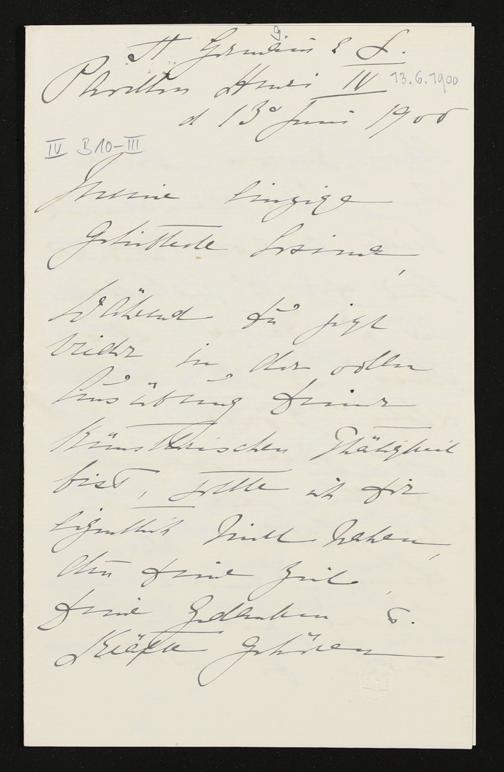 St Germain e L.
Pavillon Henri IV 13.6.1900
d 13. Juni 1900
IV B10-III
Meine einzige
Geliebteste Cosima,
Während Du jezt
wieder in der vollen
Ausübung Deiner
Künstlerischen Thätigkeit
bist, sollte ich Dir
eigentlich nicht nahen,
den Deine Zeit,
Deine Gedanken u.
Kräfte gehören